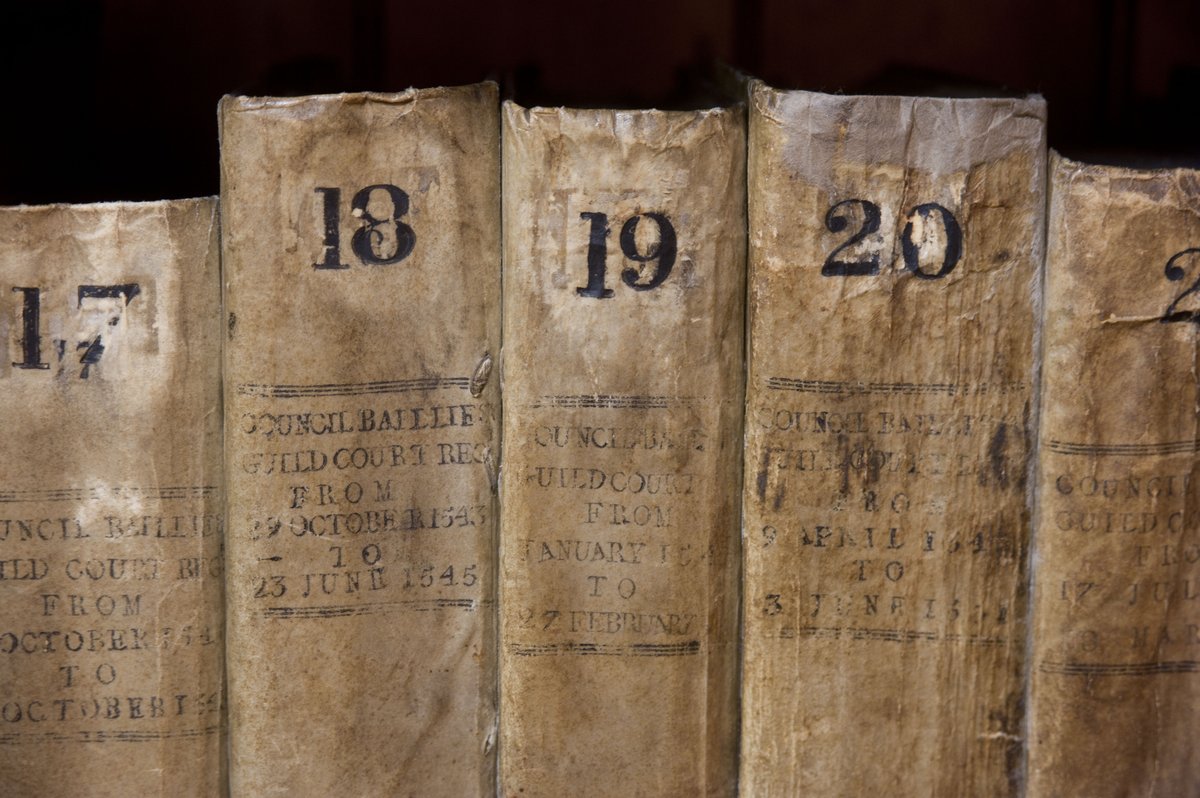 17
COUNCIL BAILLIE
GUILD COURT REG
FROM
OCTOBER 154
TO
OCTOBER 15
18
COUNCIL BAILLIE
GUILD COURT REG
FROM
29 OCTOBER 1543
TO
23 JUNE 1545
19
COUNCIL BAIL
GUILD COURT
FROM
JANUARY 154
TO
27 FEBRUARY
20
COUNCIL BAILLIE
GUILD COURT
FROM
9 APRIL 154
TO
3 JUNE 1551
2
COUNCIL
GUILD C
FRO
17 JUL
MAR